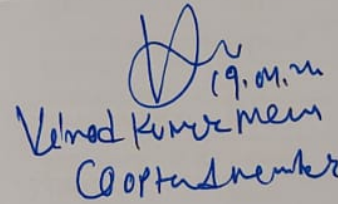 19.04.24
Veinod Kumar Meen
Coopted member